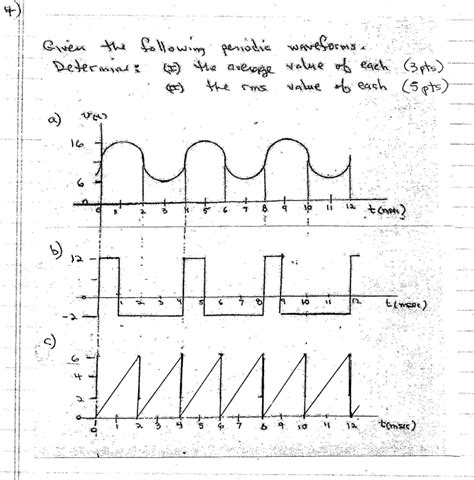 4)
Given the following periodic waveforms.
Determine: (I) the average value of each (3pts)
(II) the rms value of each (5pts)
a)
v(t)
16
6
0 1 2 3 4 5 6 7 8 9 10 11 12
t(msec)
b)
12
0
1 2 3 4 5 6 7 8 9 10 11 12
t(msec)
-2
c)
6
4
2
0
0 1 2 3 4 5 6 7 8 9 10 11 12
t(msec)